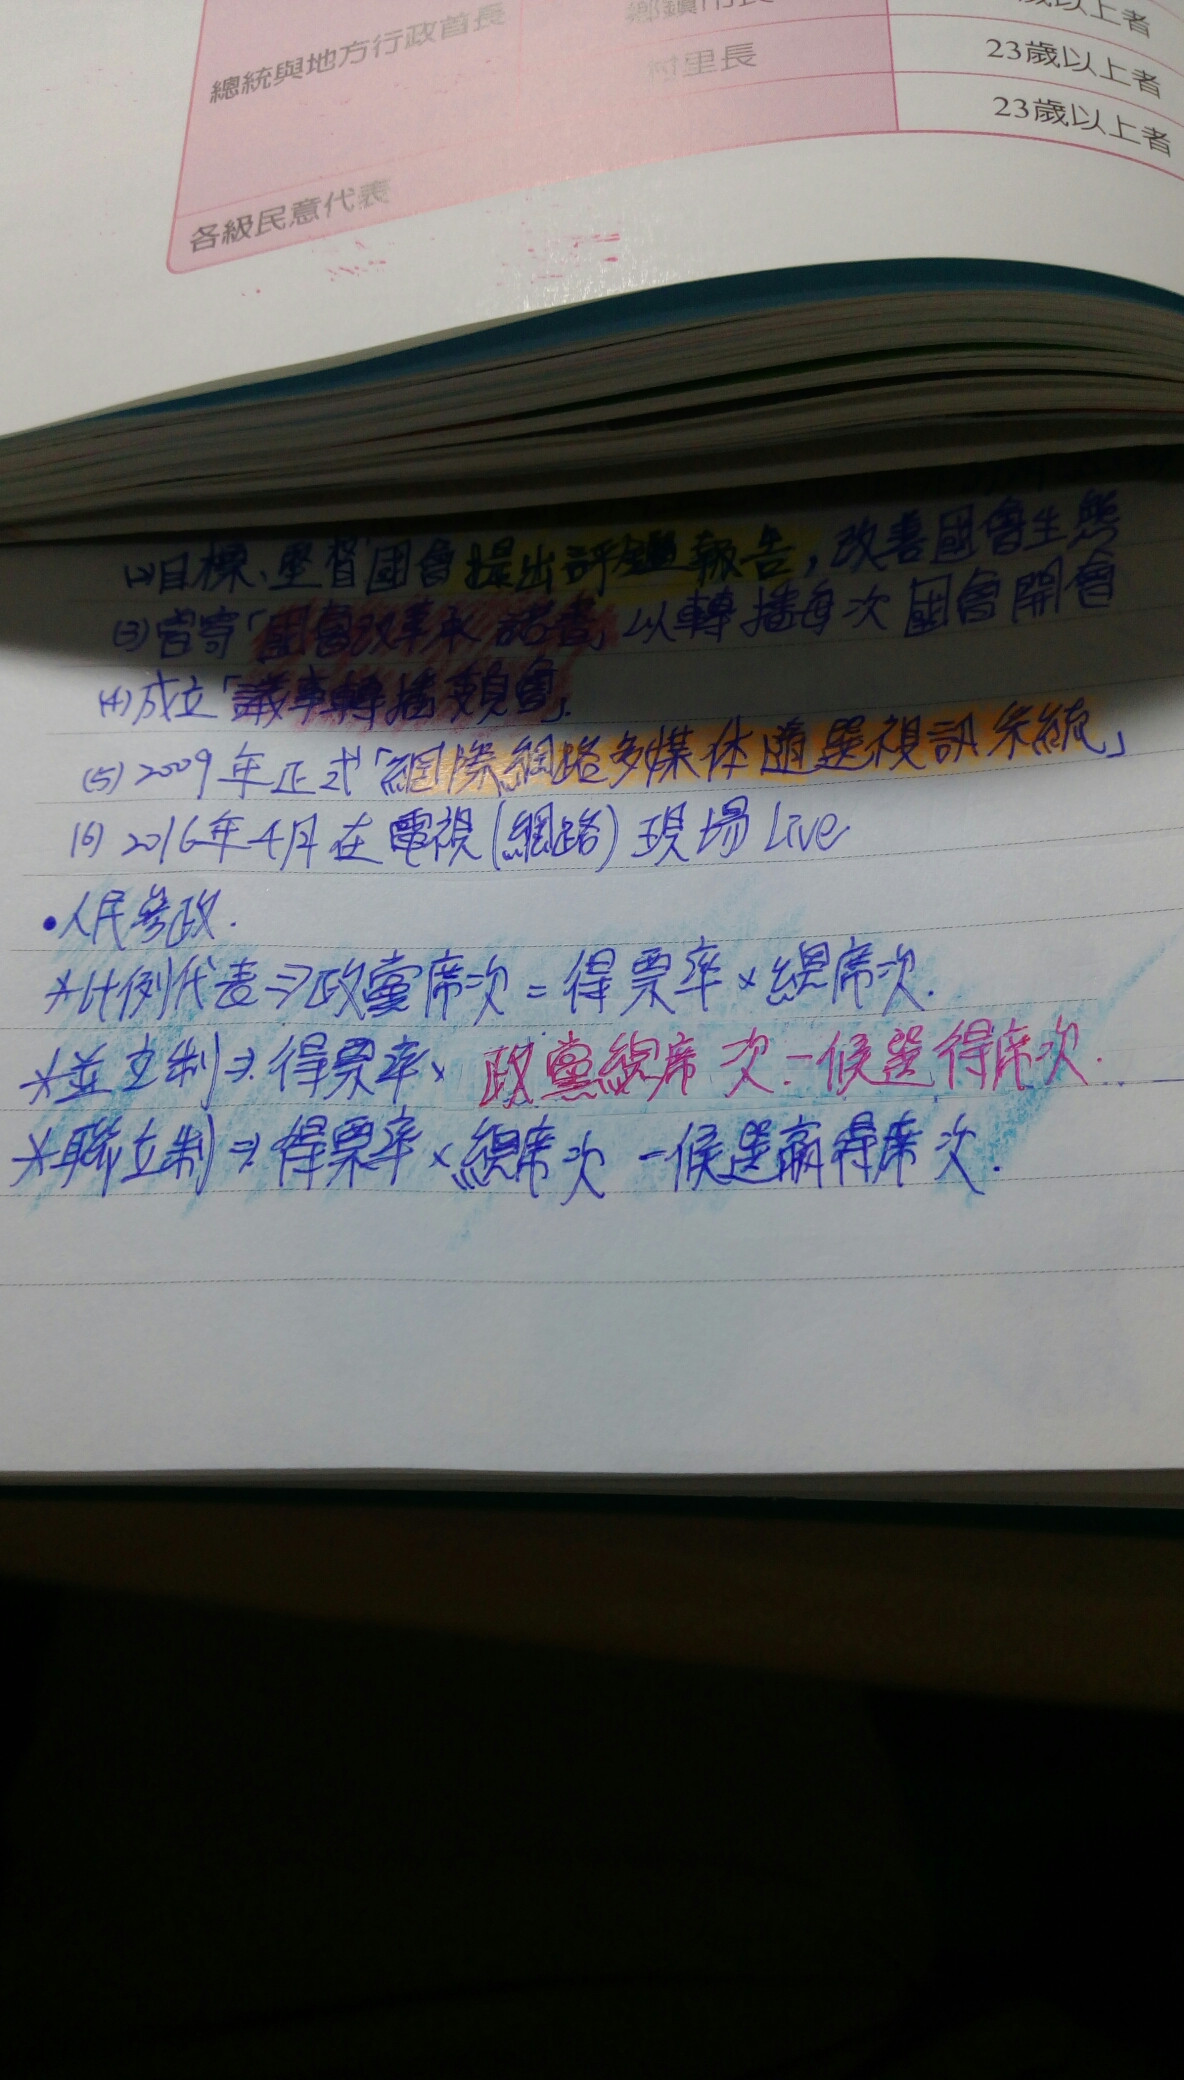 總統與地方行政首長
村里長
歲以上者
23歲以上者
23歲以上者
各級民意代表
(2)目標、監督國會提出評鑑報告,改善國會生態
(3)曾寄「國會改革承諾書」以轉播每次國會開會
(4)成立「議事轉播頻道」.
(5)2009年正式「網際網路多媒体隨選視訊系統」
(6)2016年4月在電視(網路)現場Live
•人民參政.
*比例代表⇒政黨席次=得票率×總席次.
*並立制⇒得票率×政黨總席次-候選得席次.
*聯立制⇒得票率×總席次-候選贏得席次.